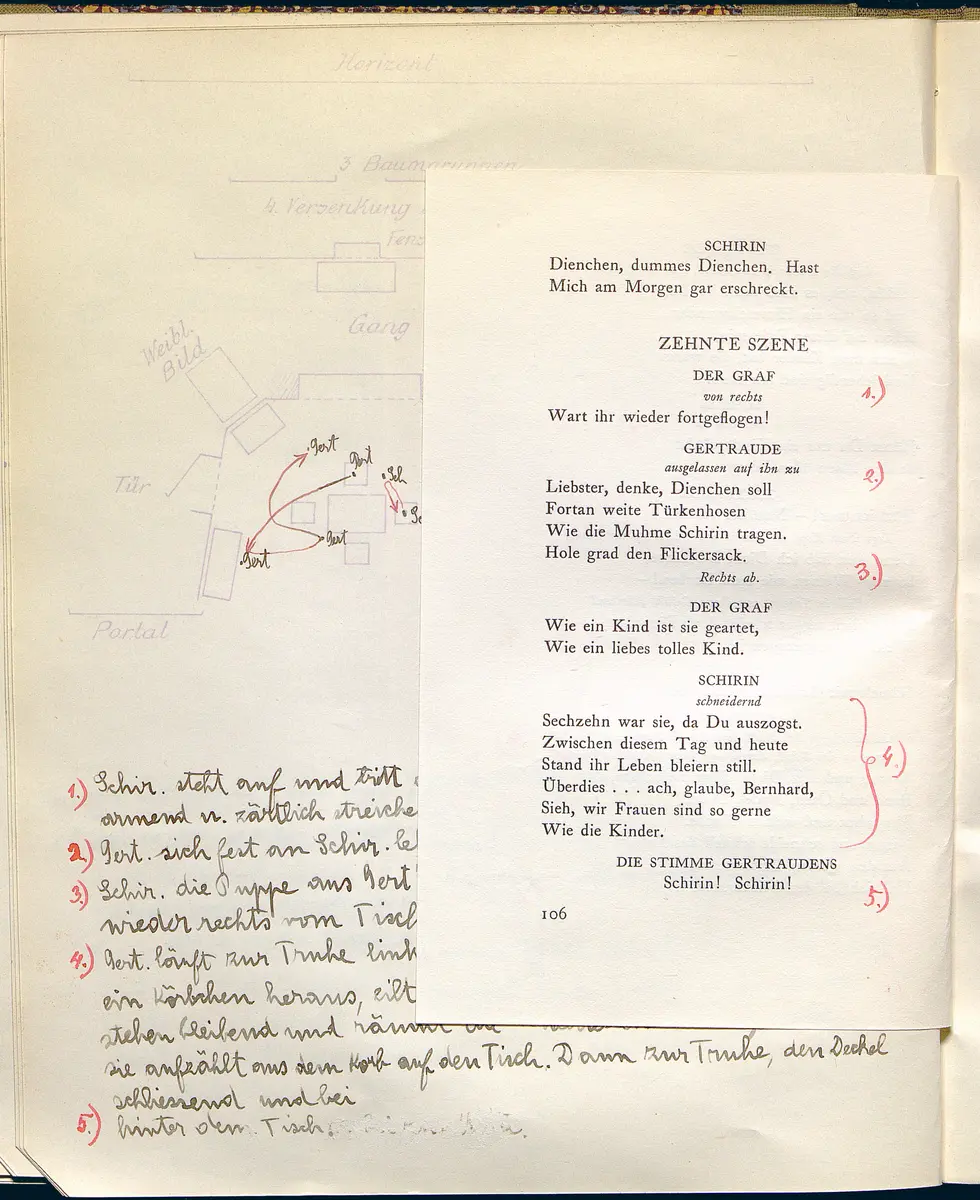 Horizont
3 Baumgruppen
4. Versenkung
Fens
Gang
Weibl.
Bild
Gert
Gert
Sch
Tür
Gert
Gert
Portal
SCHIRIN
Dienchen, dummes Dienchen. Hast
Mich am Morgen gar erschreckt.
ZEHNTE SZENE
DER GRAF
1.)
von rechts
Wart ihr wieder fortgeflogen!
GERTRAUDE
ausgelassen auf ihn zu
2.)
Liebster, denke, Dienchen soll
Fortan weite Türkenhosen
Wie die Muhme Schirin tragen.
Hole grad den Flickersack.
Rechts ab.
3.)
DER GRAF
Wie ein Kind ist sie geartet,
Wie ein liebes tolles Kind.
SCHIRIN
schneidernd
Sechzehn war sie, da Du auszogst.
Zwischen diesem Tag und heute
Stand ihr Leben bleiern still.
4.)
Überdies . . . ach, glaube, Bernhard,
Sieh, wir Frauen sind so gerne
Wie die Kinder.
DIE STIMME GERTRAUDENS
Schirin! Schirin!
5.)
106
1.) Schir. steht auf und tritt
armend u. zärtlich streiche
2.) Gert. sich fest an Schir. le
3.) Schir. die Puppe aus Gert
wieder rechts vom Tisch
4.) Gert. läuft zur Truhe link
ein Körbchen heraus, eilt
stehen bleibend und räumt
sie aufzählt aus dem Korb auf den Tisch. Dann zur Truhe, den Deckel
schliessend und bei
5.) hinter dem Tisch.